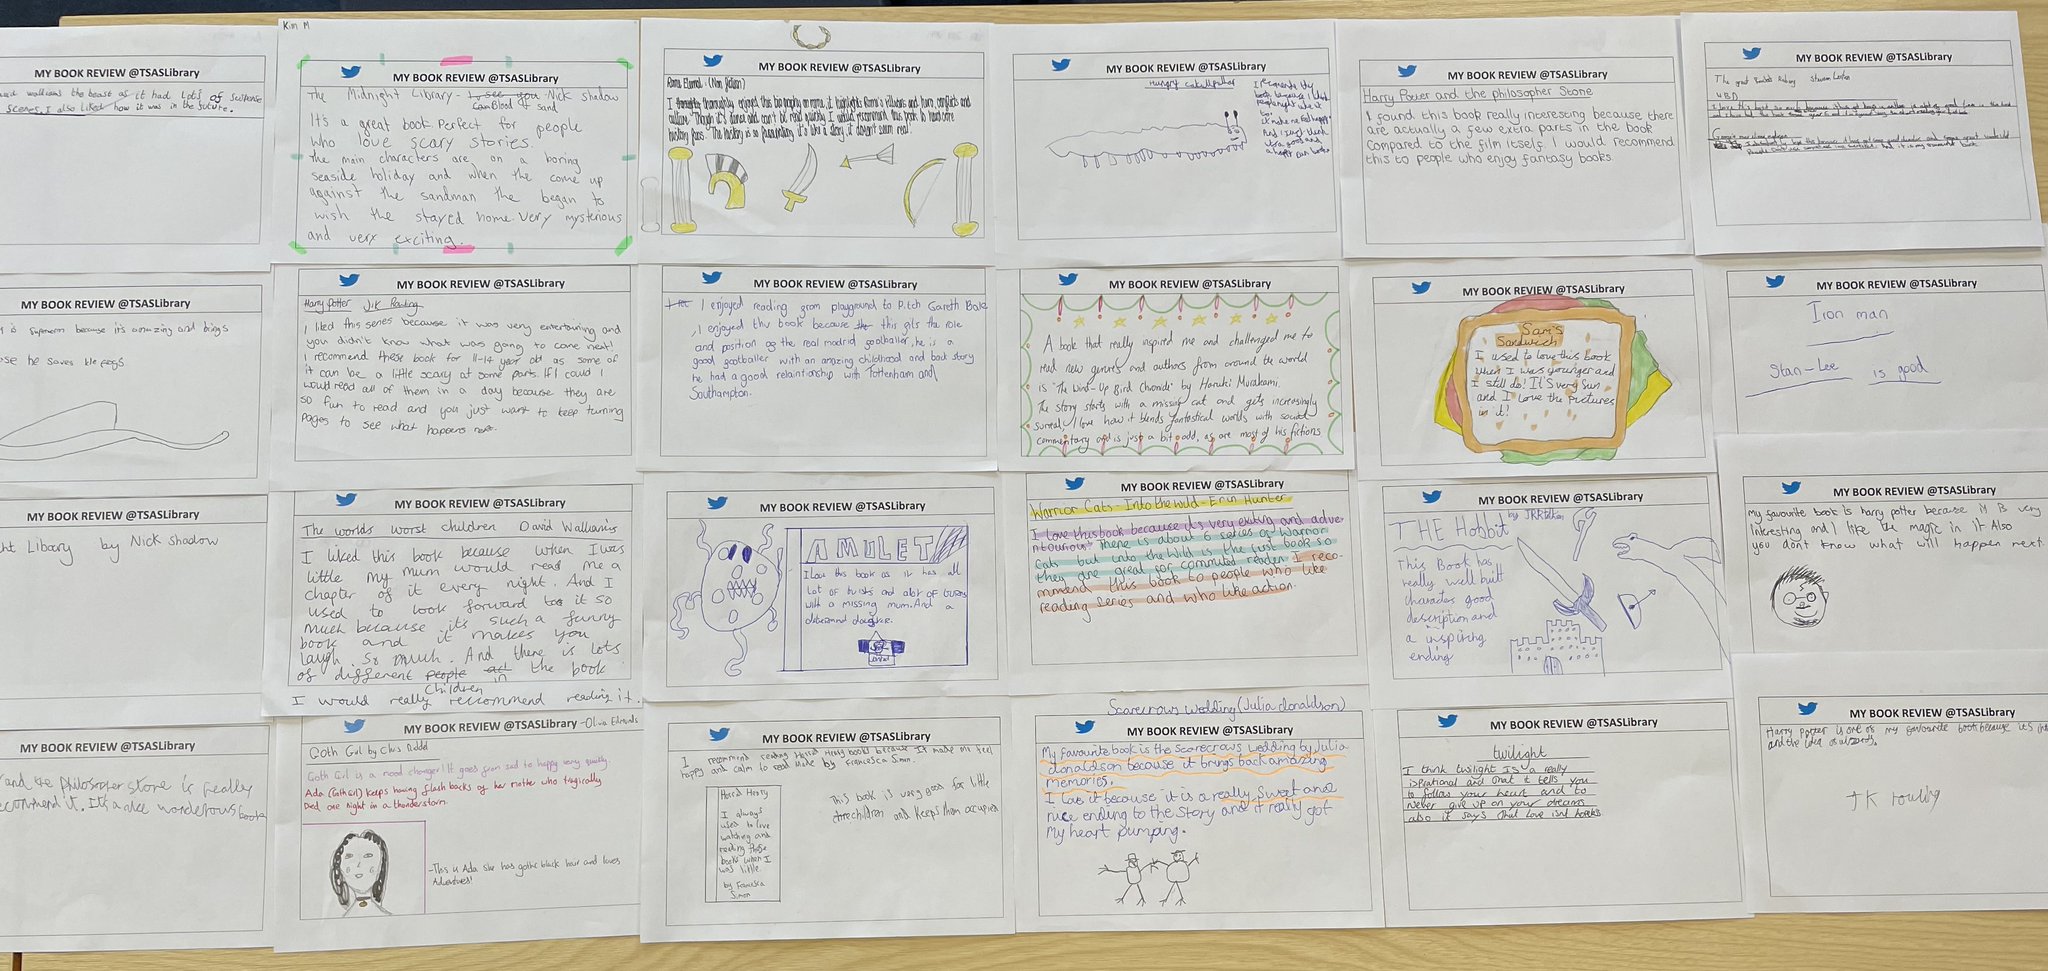 MY BOOK REVIEW @TSASLibrary
walliams the beast as it had Lots of suspense
scenes. I also liked how it was in the future.
Kim M
MY BOOK REVIEW @TSASLibrary
The Midnight Library - I see you Nick shadow
Blood of sand
It's a great book. Perfect for people
who love scary stories.
The main characters are on a boring
seaside holiday and when the come up
against the sandman the began to
wish the stayed home. Very mysterious
and very exciting.
MY BOOK REVIEW @TSASLibrary
Roma Eternal - (Non fiction)
I thoroughly enjoyed this biography on rome, it highlights Roma's villains and hero, conflicts and
culture. Though it's dense and can't be read quickly I would recommend this book to hardcore
history fans. This history is so fascinating it's like a story, it doesn't seem real!
MY BOOK REVIEW @TSASLibrary
Hungry caterpillar
book because I think
people might like it
too.
it make me feel happy
And I just think
it's a good and
a happy fun book.
MY BOOK REVIEW @TSASLibrary
Harry Potter and the philosopher Stone
I found this book really interesting because there
are actually a few extra parts in the book
compared to the film itself. I would recommend
this to people who enjoy fantasy books.
MY BOOK REVIEW @TSASLibrary
The great Robbery
MY BOOK REVIEW @TSASLibrary
is superworm because it's amazing and brings
he saves the frogs
MY BOOK REVIEW @TSASLibrary
Harry Potter J.K Rowling
I liked this series because it was very entertaining and
you didn't know what was going to come next!
I recommend these book for 11-14 year old as some of
it can be a little scary at some parts. If I could I
would read all of them in a day because they are
so fun to read and you just want to keep turning
pages to see what happens next.
MY BOOK REVIEW @TSASLibrary
I enjoyed reading from playground to Pitch Gareth Bale
I enjoyed this book because this fits the role
and position of the real madrid footballer, he is a
good footballer with an amazing childhood and back story
he had a good relaintionship with Tottenham and
Southampton.
MY BOOK REVIEW @TSASLibrary
A book that really inspired me and challenged me to
read new genres and authors from around the world
is 'The Wind-Up Bird Chronicle' by Haruki Murakami.
The story starts with a missing cat and gets increasingly
surreal, I love how it blends fantastical worlds with social
commentary and is just a bit odd, as are most of his fictions
MY BOOK REVIEW @TSASLibrary
Sam's
Sandwich
I used to love this book
when I was younger and
I still do! It's very fun
and I love the pictures
in it!
MY BOOK REVIEW @TSASLibrary
Iron man
Stan-Lee is good
MY BOOK REVIEW @TSASLibrary
Library by Nick shadow
MY BOOK REVIEW @TSASLibrary
The worlds worst children David Walliams
I liked this book because when I was
a little my mum would read me a
chapter of it every night. And I
used to look forward to it so
much because its such a funny
book and it makes you
laugh so much. And there is lots
of different people in the book
Children
I would really reccomend reading it.
MY BOOK REVIEW @TSASLibrary
AMULET
I Love this book as it has all
Lot of twists and alot of turns
with a missing mum. And a
determined daughter.
MY BOOK REVIEW @TSASLibrary
Warrior Cats - Into the wild - Erin Hunter
I love this book because it's very exiting and adve-
nturous! There is about 6 series of Warrior
Cats but into the Wild is the first book so
they are great for commited reader. I reco-
mmend this book to people who like
reading series and who like action.
MY BOOK REVIEW @TSASLibrary
THE Hobbit
by JRRtolkien
This Book has
really well built
characters good
description and
a inspiring
ending
MY BOOK REVIEW @TSASLibrary
my favourite book is harry potter because it is very
interesting and I like the magic in it. Also
you don't know what will happen next.
MY BOOK REVIEW @TSASLibrary
and the philosopher stone is really
recommend it. It's a nice wonderous book
MY BOOK REVIEW @TSASLibrary - Olivia Edmonds
Goth Girl by Chris Riddell
Goth Girl is a mood changer! It goes from sad to happy very quickly.
Ada (Goth Girl) keeps having flash backs of her mother who tragically
Died one night in a thunderstorm.
-This is Ada she has gothic black hair and loves
Adventures!
MY BOOK REVIEW @TSASLibrary
I recommend reading Horrid Henry books because It made me feel
happy and calm to read. Made by Francesca Simon.
Horrid Henry
I always
used to love
watching and
reading these
books when I
was little
by Francesca
Simon
This book is very good for little
children and keeps them occupied
Scarecrows Wedding (Julia donaldson)
MY BOOK REVIEW @TSASLibrary
My favourite book is the scarecrows wedding by Julia
donaldson because it brings back amazing
memories.
I love it because it is a really sweet and
nice ending to the story and it really got
My heart pumping.
MY BOOK REVIEW @TSASLibrary
twilight
I think twilight is a really
ispirational and that it tells you
to follow your heart and to
never give up on your dreams
also it says that love isnt
MY BOOK REVIEW @TSASLibrary
Harry Potter is one of my favourite book because it's
and the idea of wizards.
J K rowling